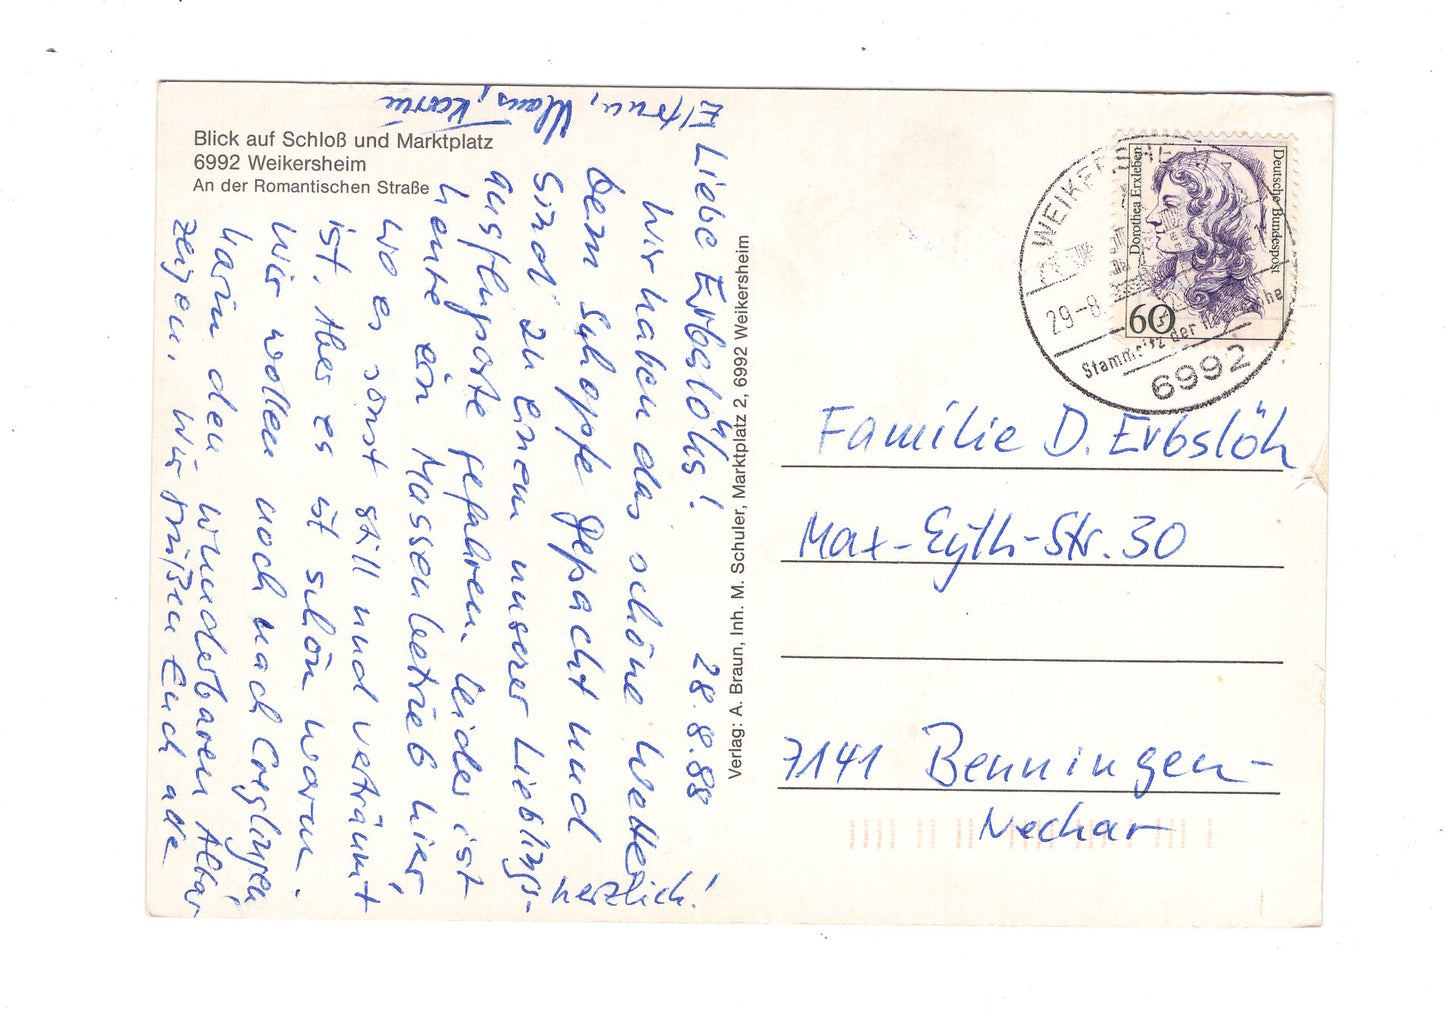 Blick auf Schloß und Marktplatz
6992 Weikersheim
An der Romantischen Straße
28.8.88
Liebe Erbslöhs!
Wir haben das schöne Wetter
beim Schopfe gepackt und
sind zu einem unserer Lieblings-
ausflugsorte gefahren. Leider ist
heute ein Massenbetrieb hier,
wo es sonst still und verträumt
ist. Aber es ist schön warm.
Wir wollen noch nach Creglingen
Karin den wunderbaren Altar
zeigen. Wir grüßen Euch alle
herzlich!
Klaus, Karin
Verlag: A. Braun, Inh. M. Schuler, Marktplatz 2, 6992 Weikersheim
Deutsche Bundespost
Dorothea Erxleben
60
WEIKERSHEIM
29-8.
Stammsitz der
6992
Familie D. Erbslöh
Max-Eyth-Str. 30
7141 Benningen-
Neckar